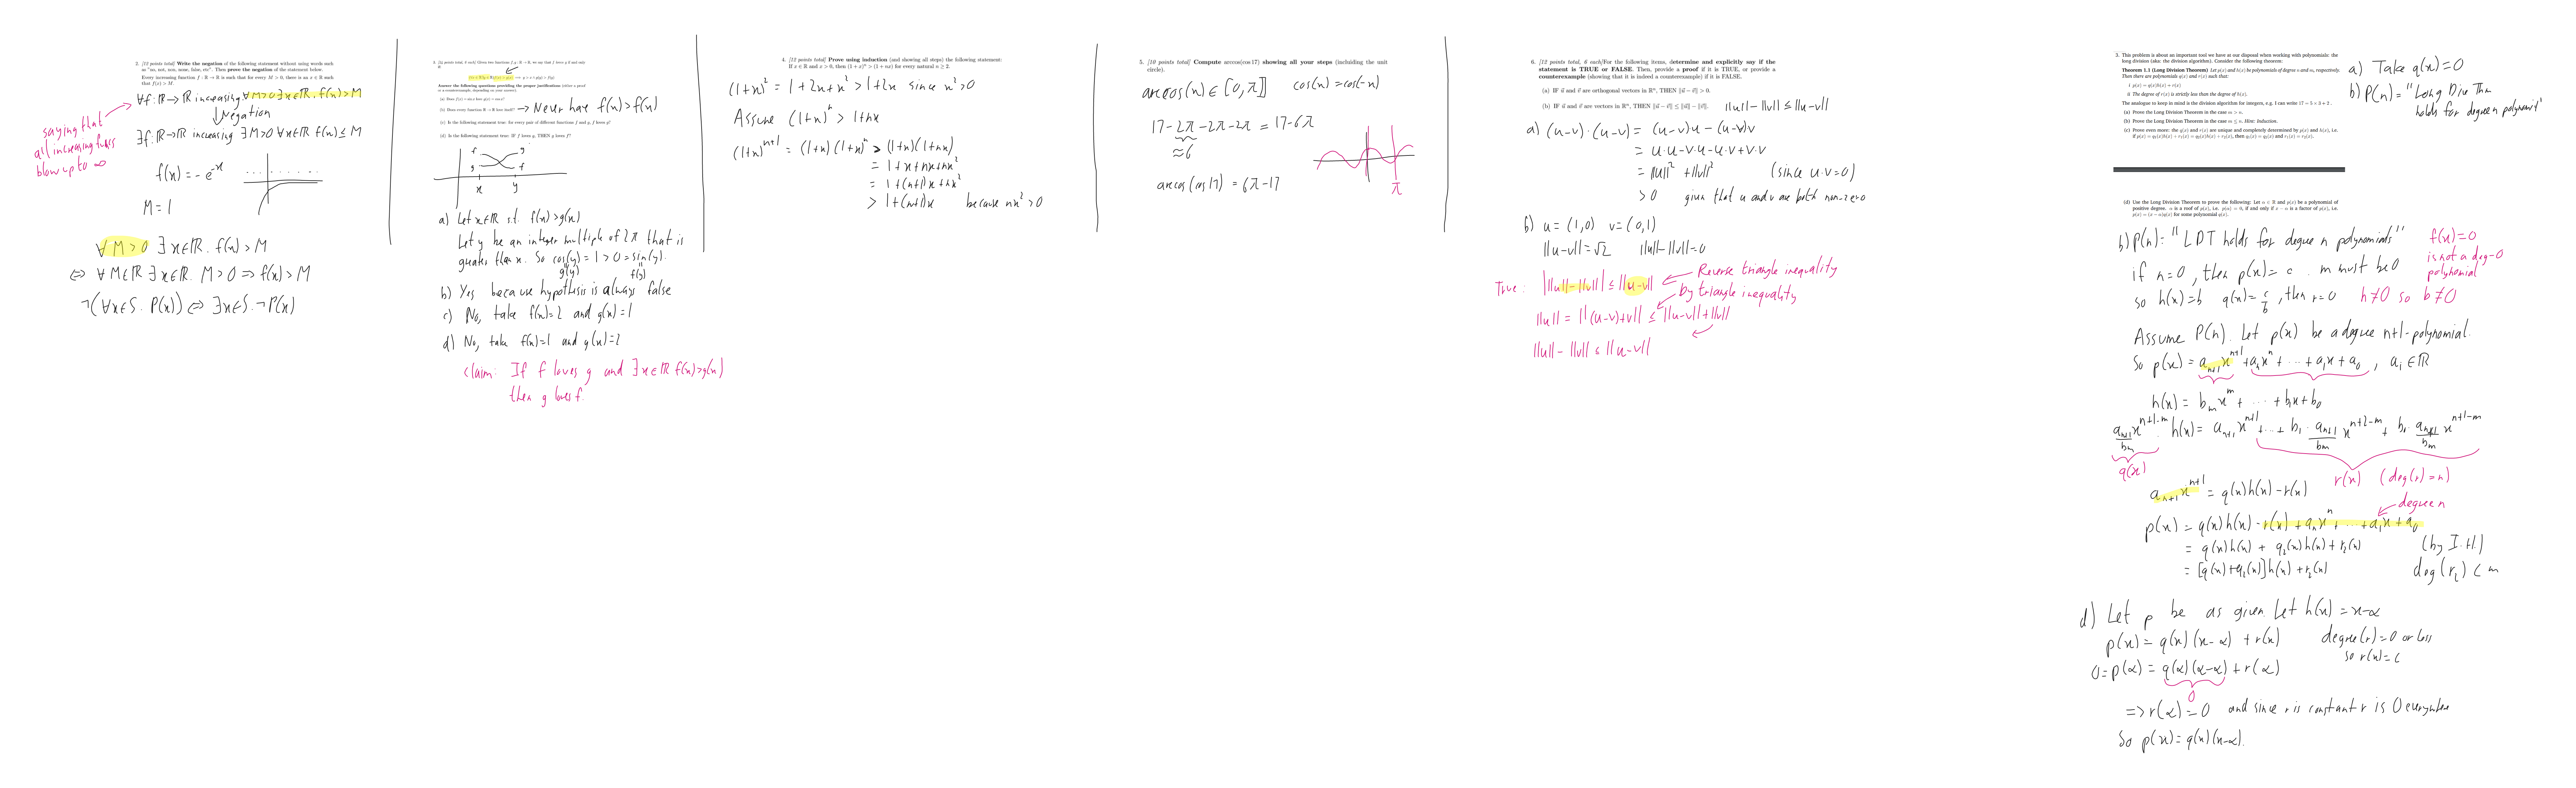 2. [12 points total] Write the negation of the following statement without using words such as "no, not, non, none, false, etc". Then prove the negation of the statement below.
Every increasing function f : R → R is such that for every M > 0, there is an x ∈ R such that f(x) > M.
∀f: R→R increasing. ∀M>0 ∃x∈R. f(x)>M
↓ Negation
∃f: R→R increasing ∃M>0 ∀x∈R f(x)≤M
saying that
all increasing funcs
blow up to ∞
f(x) = -e^{-x}
M=1
∀M>0 ∃x∈R. f(x)>M
⇔ ∀M∈R ∃x∈R. M>0 ⇒ f(x)>M
¬(∀x∈S. P(x)) ⇔ ∃x∈S. ¬P(x)
Answer the following questions providing the proper justifications
(c) Is the following statement true: for every pair of different functions f and g, f loves g?
(d) Is the following statement true: IF f loves g, THEN g loves f?
→ Never have f(x)>f(x)
f
g
g
f
x
y
a) Let x∈R s.t. f(x)>g(x)
Let y be an integer multiple of 2π that is
greater than x. So cos(y) = 1 > 0 = sin(y).
g(y) f(y)
b) Yes because hypothesis is always false
c) No, take f(x)=2 and g(x)=1
d) No, take f(x)=1 and g(x)=2
Claim: If f loves g and ∃x∈R f(x)>g(x)
then g loves f.
4. [12 points total] Prove using induction (and showing all steps) the following statement:
If x ∈ R and x > 0, then (1 + x)^n > (1 + nx) for every natural n ≥ 2.
(1+x)^2 = 1+2x+x^2 > 1+2x since x^2>0
Assume (1+x)^n > 1+nx
(1+x)^{n+1} = (1+x)(1+x)^n > (1+x)(1+nx)
= 1+x+nx+nx^2
= 1+(n+1)x+nx^2
> 1+(n+1)x because nx^2>0
5. [10 points total] Compute arccos(cos 17) showing all your steps (including the unit circle).
arccos(x) ∈ [0,π] cos(x)=cos(-x)
17-2π-2π-2π = 17-6π
≈6
π
arccos(cos 17) = 6π-17
6. [12 points total, 6 each] For the following items, determine and explicitly say if the statement is TRUE or FALSE. Then, provide a proof if it is TRUE, or provide a counterexample (showing that it is indeed a counterexample) if it is FALSE.
(a) IF u and v are orthogonal vectors in R^n, THEN ||u − v|| > 0.
(b) IF u and v are vectors in R^n, THEN ||u − v|| ≤ ||u|| − ||v||.
||u||-||v|| ≤ ||u-v||
a) (u-v)·(u-v) = (u-v)u - (u-v)v
= u·u-v·u-u·v+v·v
= ||u||^2 + ||v||^2 (since u·v=0)
> 0 given that u and v are both non-zero
b) u=(1,0) v=(0,1)
||u-v||=√2 ||u||-||v||=0
True: | ||u||-||v|| | ≤ ||u-v|| ← Reverse triangle inequality
by triangle inequality
||u|| = ||(u-v)+v|| ≤ ||u-v||+||v||
||u||-||v|| ≤ ||u-v||
3. This problem is about an important tool we have at our disposal when working with polynomials: the long division (aka: the division algorithm). Consider the following theorem:
Theorem 1.1 (Long Division Theorem) Let p(x) and h(x) be polynomials of degree n and m, respectively. Then there are polynomials q(x) and r(x) such that:
i p(x) = q(x)h(x) + r(x)
ii The degree of r(x) is strictly less than the degree of h(x).
The analogue to keep in mind is the division algorithm for integers, e.g. I can write 17 = 5 × 3 + 2.
(a) Prove the Long Division Theorem in the case m > n.
(b) Prove the Long Division Theorem in the case m ≤ n. Hint: Induction.
(c) Prove even more: the q(x) and r(x) are unique and completely determined by p(x) and h(x), i.e. if p(x) = q1(x)h(x) + r1(x) = q2(x)h(x) + r2(x), then q1(x) = q2(x) and r1(x) = r2(x).
a) Take q(x)=0
b) P(n)= "Long Div Thm
holds for degree n polynomial"
(d) Use the Long Division Theorem to prove the following: Let α ∈ R and p(x) be a polynomial of positive degree. α is a root of p(x), i.e. p(α) = 0, if and only if x − α is a factor of p(x), i.e. p(x) = (x − α)q(x) for some polynomial q(x).
b) P(n)= "LDT holds for degree n polynomials"
f(x)=0
is not a deg-0
polynomial
if n=0, then p(x)=c. m must be 0
so h(x)=b q(x)=c/b, then r=0 h≠0 so b≠0
Assume P(n). Let p(x) be a degree n+1-polynomial.
So p(x) = a_{n+1}x^{n+1} + a_n x^n + ... + a_1x + a_0, a_i∈R
h(x) = b_m x^m + ... + b_1x + b_0
a_{n+1}/b_m x^{n+1-m}·h(x) = a_{n+1}x^{n+1} + ... + b_1·a_{n+1}/b_m x^{n+2-m} + b_0·a_{n+1}/b_m x^{n+1-m}
q(x)
r(x) (deg(r)=n)
a_{n+1}x^{n+1} = q(x)h(x)-r(x)
degree n
p(x) = q(x)h(x) - r(x) + a_n x^n + ... + a_1x + a_0
= q(x)h(x) + q_2(x)h(x) + r_2(x) (by I.H.)
= [q(x)+q_2(x)]h(x) + r_2(x) deg(r_2) < m
d) Let p be as given. Let h(x) = x-α
p(x) = q(x)(x-α) + r(x) degree(r)=0 or less
so r(x)=c
0=p(α) = q(α)(α-α) + r(α)
0
=> r(α)=0 and since r is constant r is 0 everywhere
So p(x)=q(x)(x-α).